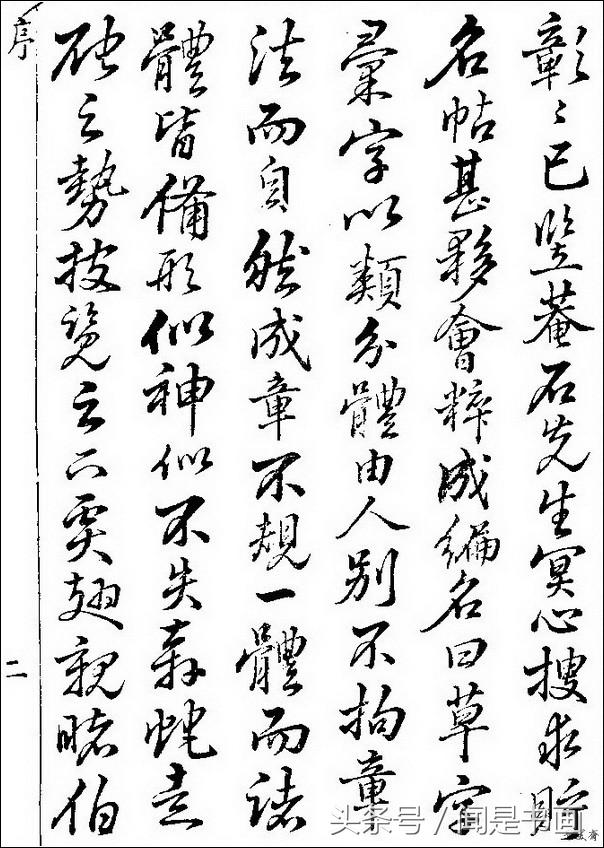 彰〻已豎菴石先生冥心搜求貯
名帖甚夥會粹成編名曰草字
彙字以類分體由人別不拘章
法而自然成章不規一體而諸
體皆備形似神似不失奔蛇走
虺之勢披覽之下奚翅親睹伯
序
二
头条号 / 闻是书画